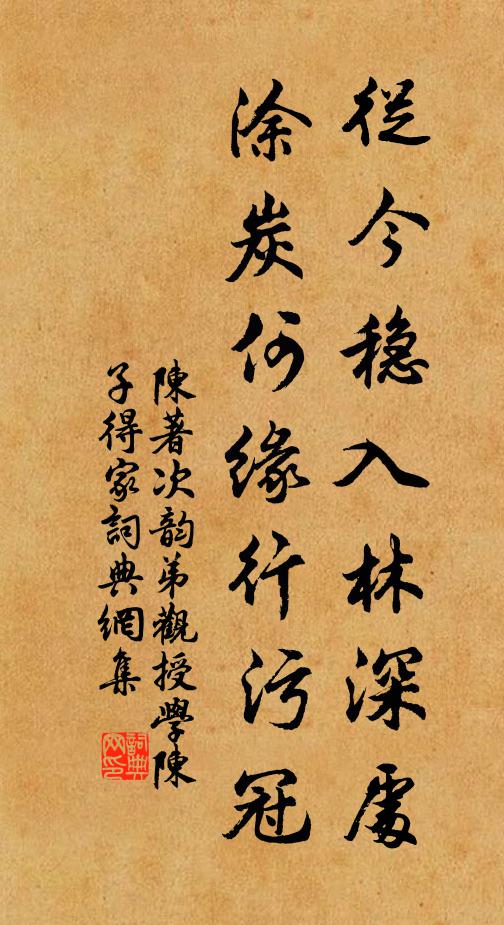 從今穩入林深處
涂炭何緣行污冠
陳著次韵弟觀授學陳
子得家詞典網集
詞典
网印